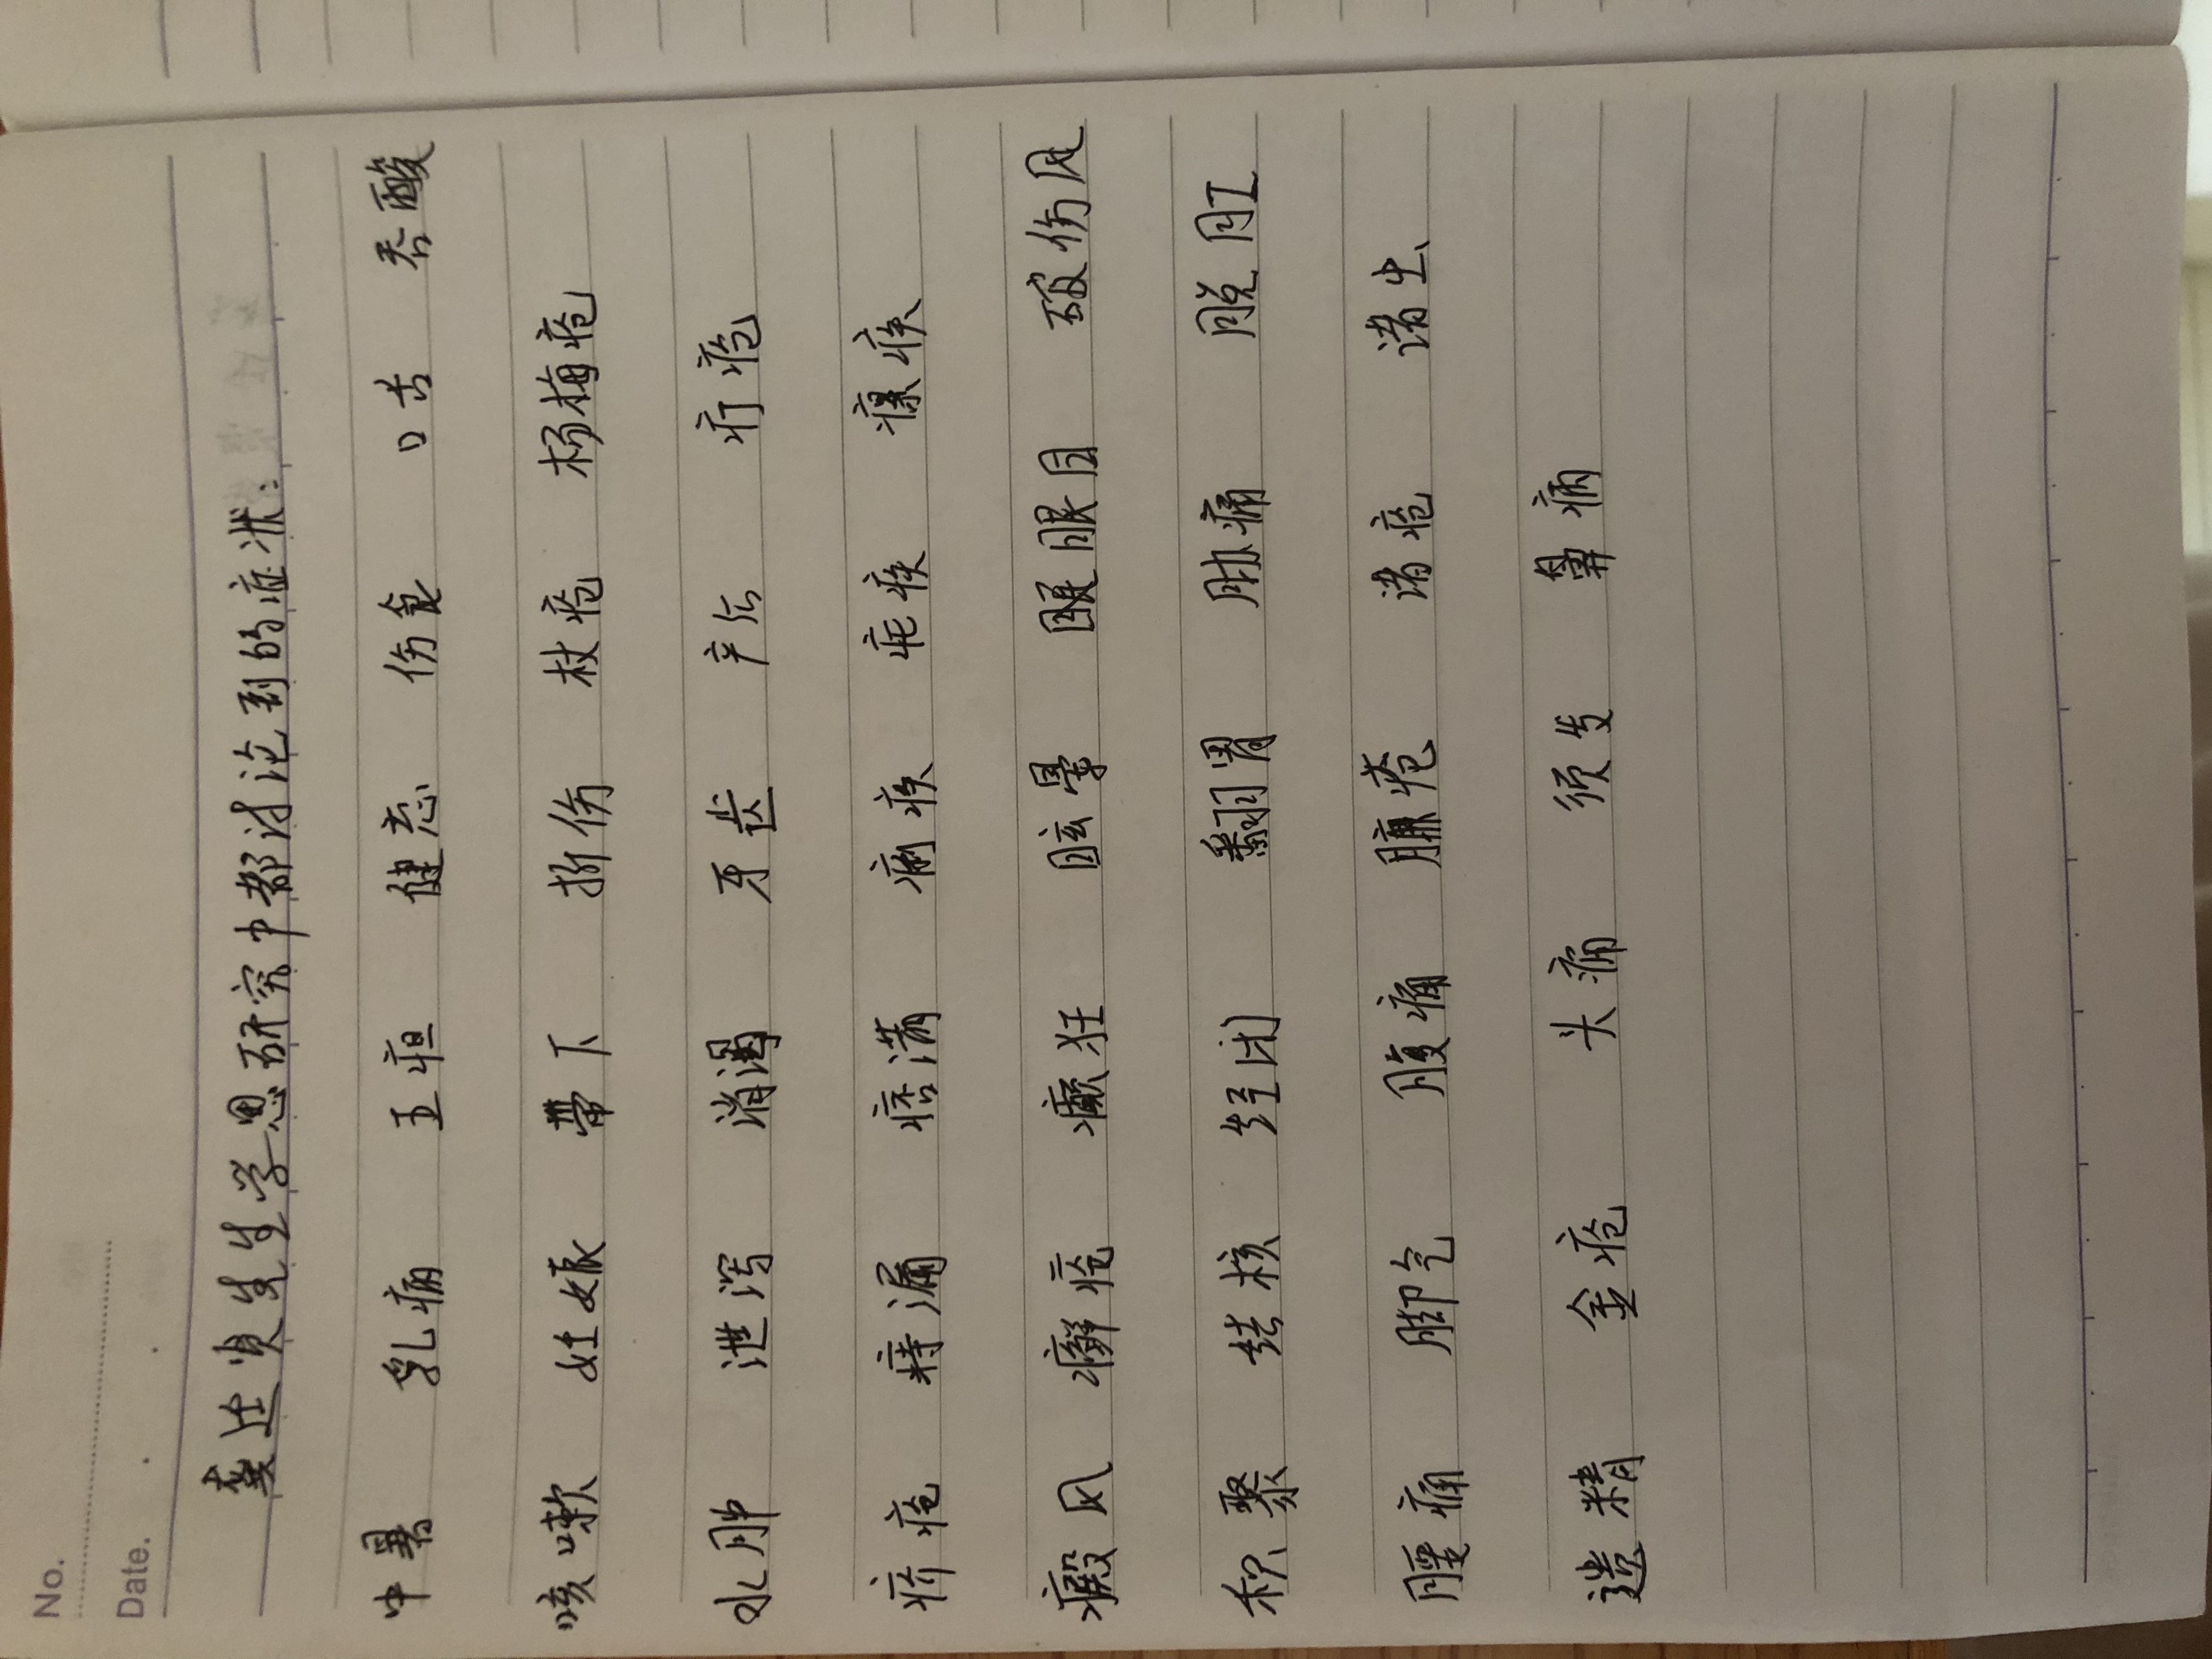 No.
Date.
龚廷贤生生学思研究中都讨论到的症状：
中暑 乳病 五疸 健忘 伤食 口舌 吞酸
咳嗽 妊娠 带下 折伤 杖疮 杨梅疮
水肿 泄泻 消渴 牙齿 产后 疔疮
疥疮 痔漏 痞满 痢疾 疟疾 瘰疾
癜风 癣疮 癫狂 眩晕 眼目 破伤风
积聚 结核 经闭 翻胃 胁痛 脱肛
腰痛 脚气 腹痛 臁疮 诸疮 诸虫
遗精 金疮 头痛 须发 鼻病